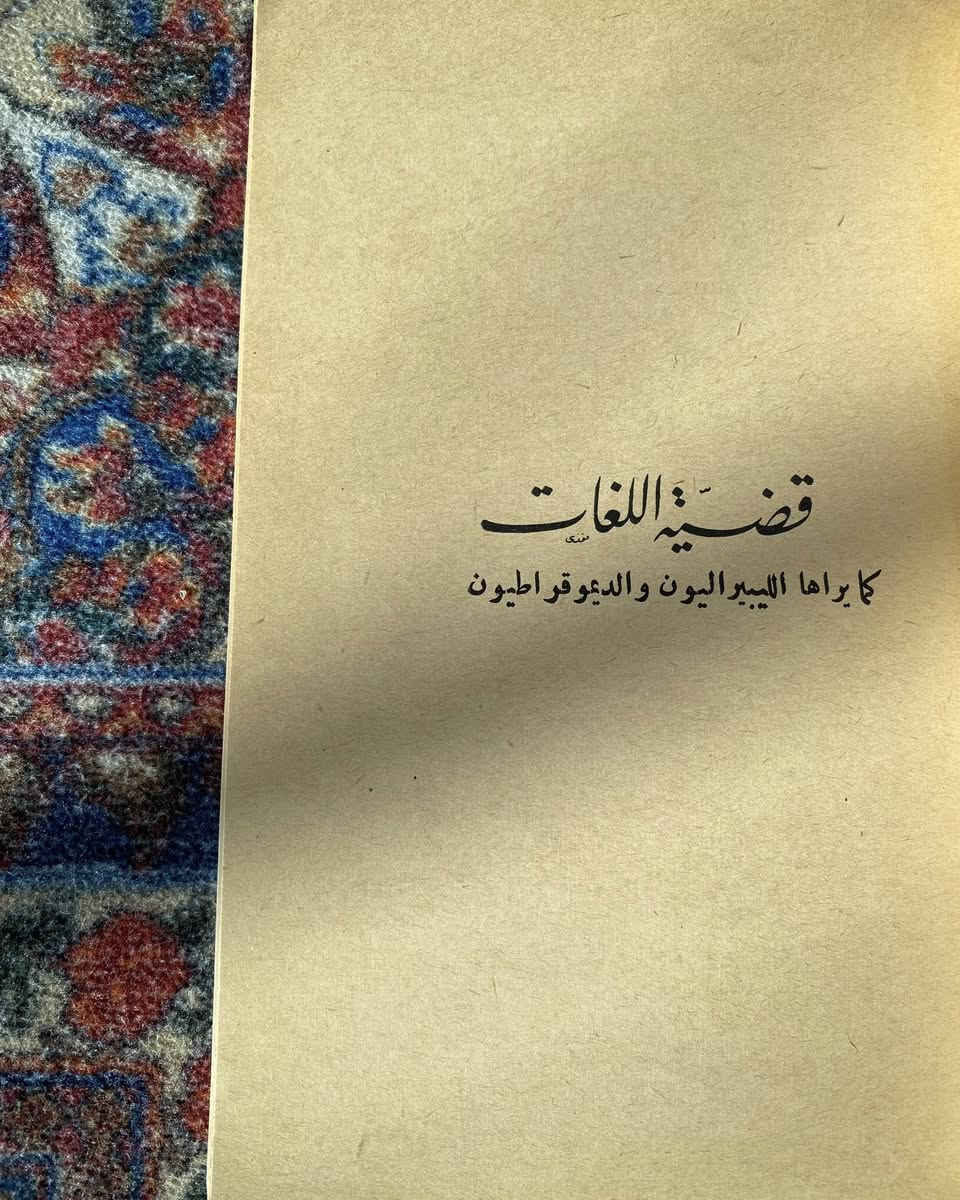 قضيّة اللغات
كما يراها الليبيراليون والديموقراطيون